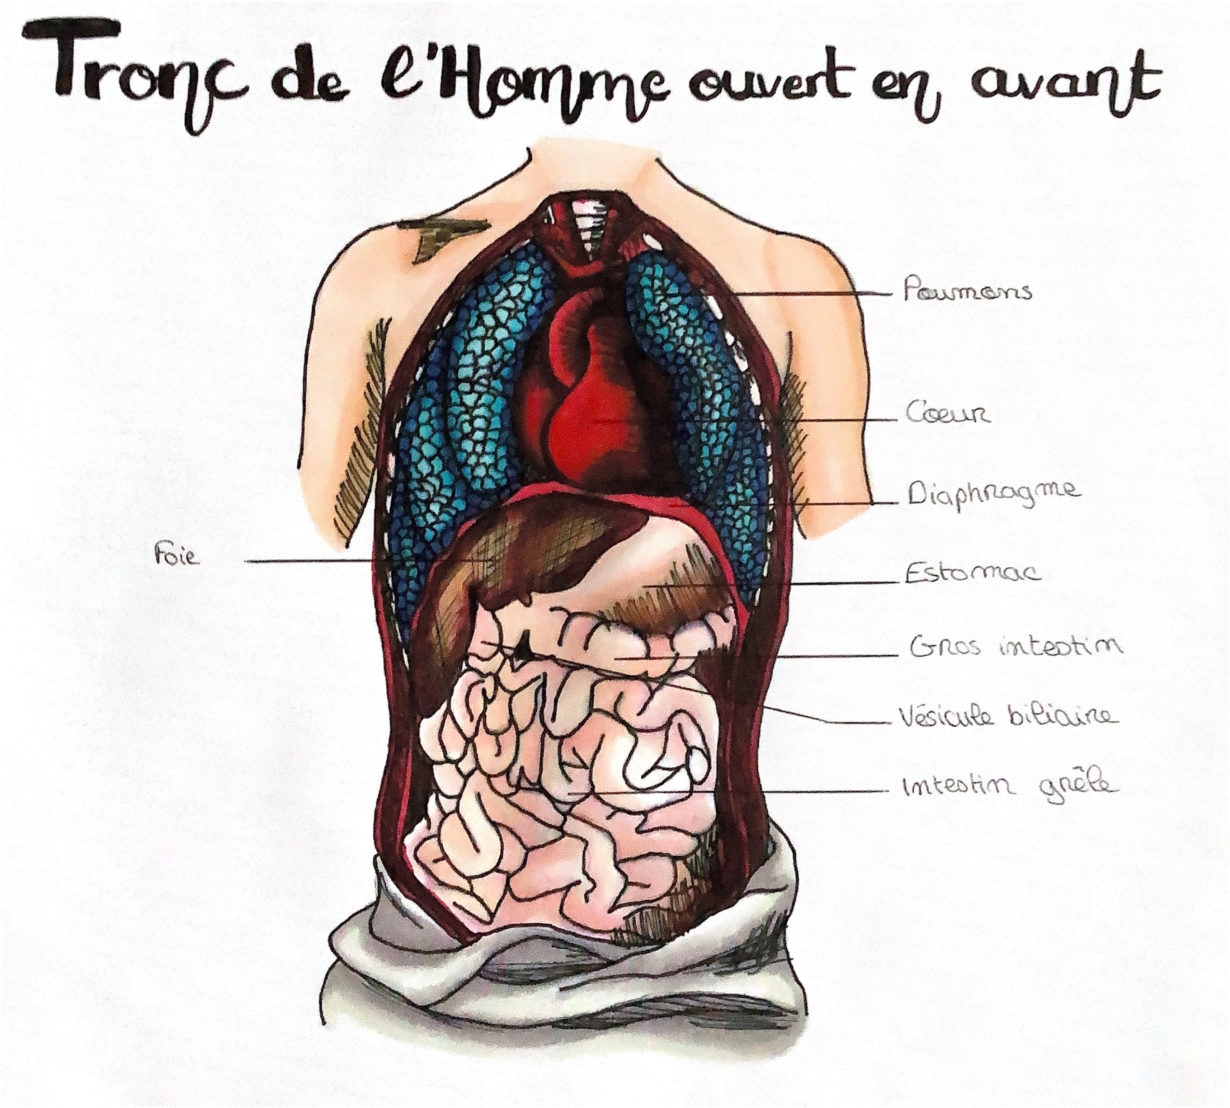 Tronc de l'Homme ouvert en avant
Poumons
Coeur
Diaphragme
Foie
Estomac
Gros intestin
Vésicule biliaire
Intestin grêle